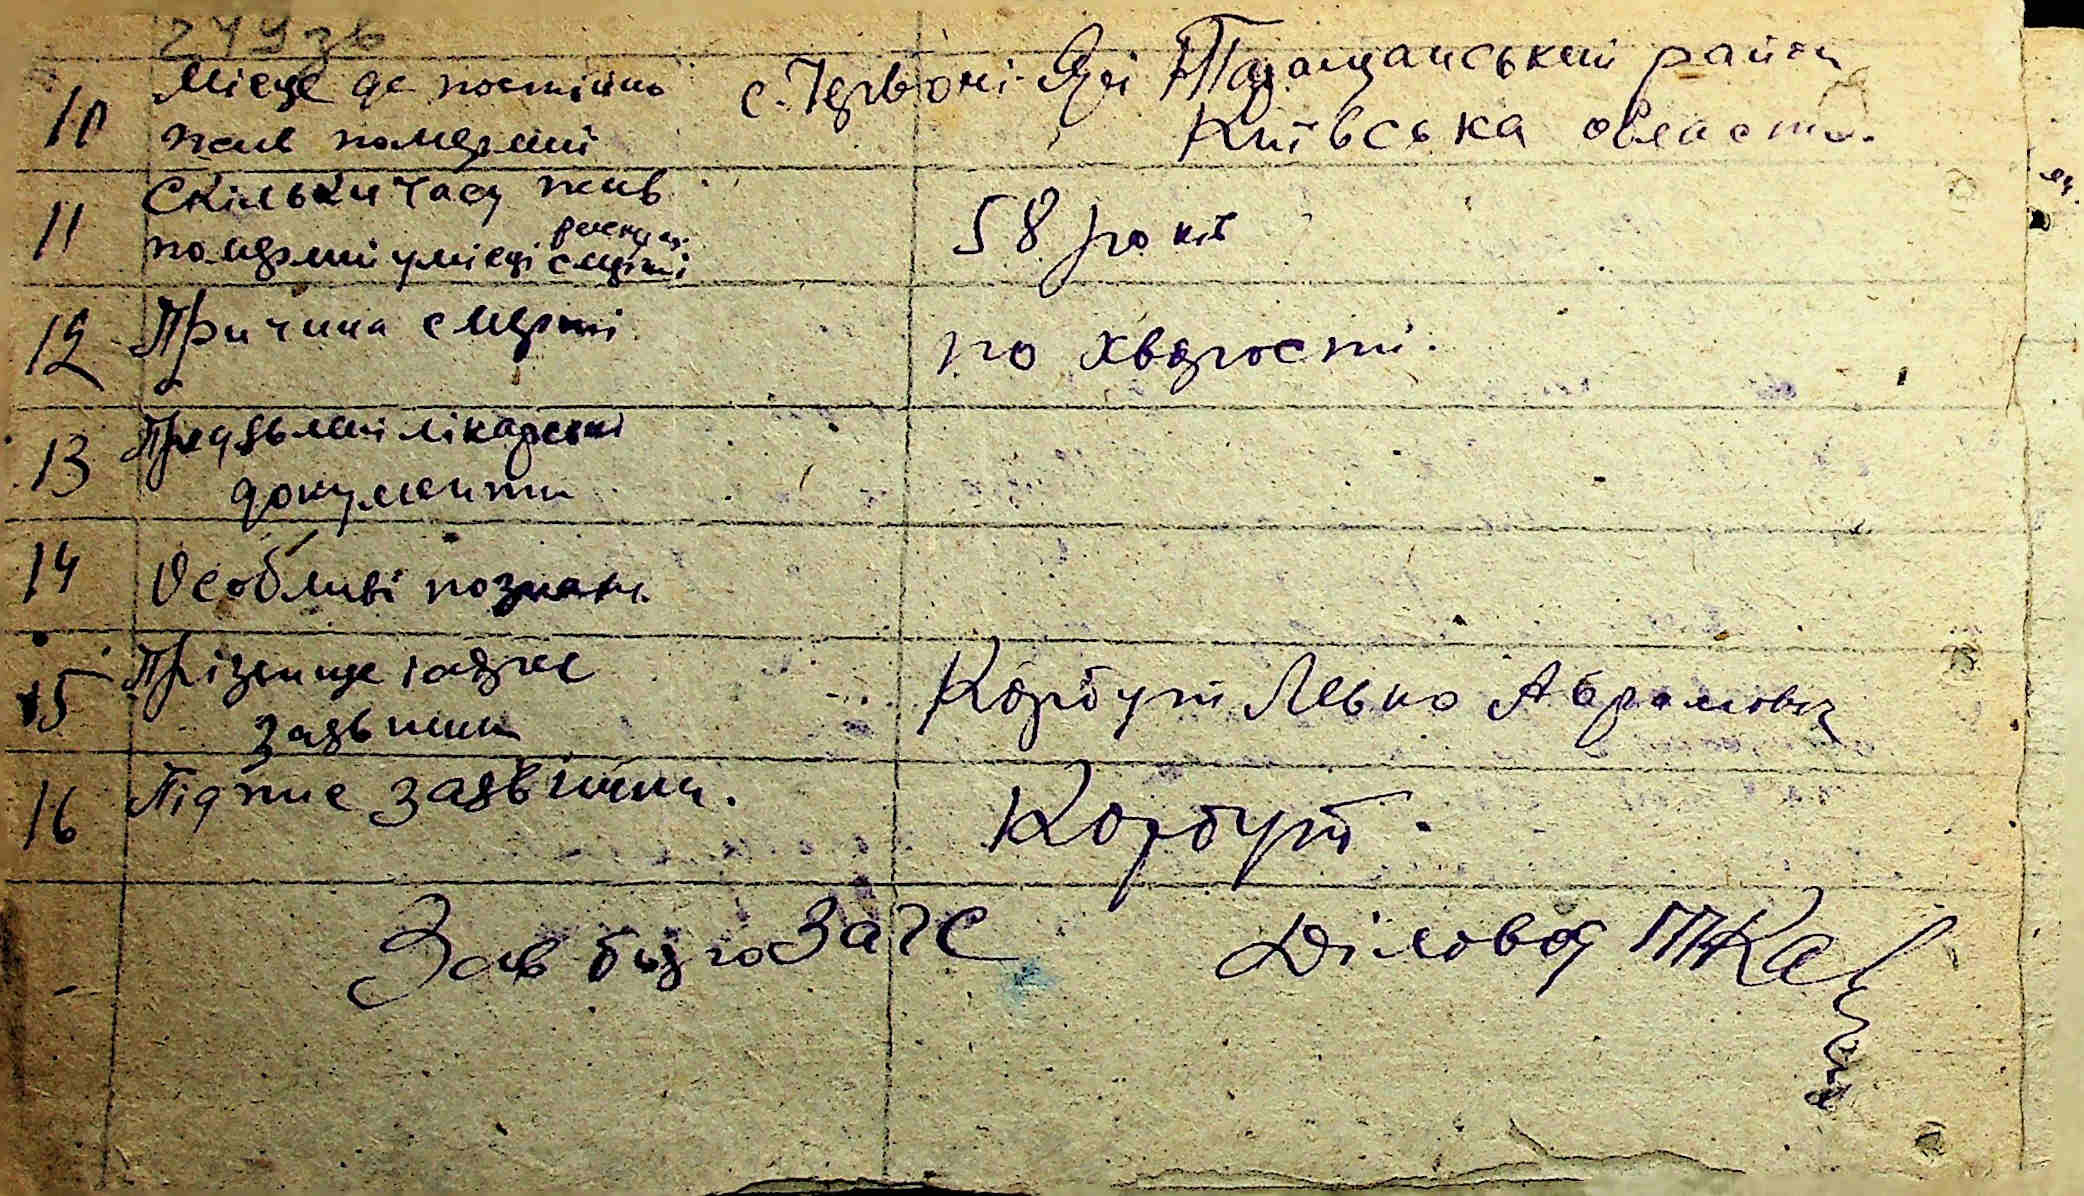 249зв
10 Місце де постійно с. Червоні Яри Таращанський район
жив померший Київська область.
11 Скільки часу жив
померший у місці смерті 58 років
12 Причина смерті по хворості.
13 Предявлені лікарські
документи
14 Особливі познаки
15 Прізвище і адрес Корбут Левко Абрамович
заявника
16 Підпис заявника. Корбут.
Зав бюро Загс Діловод